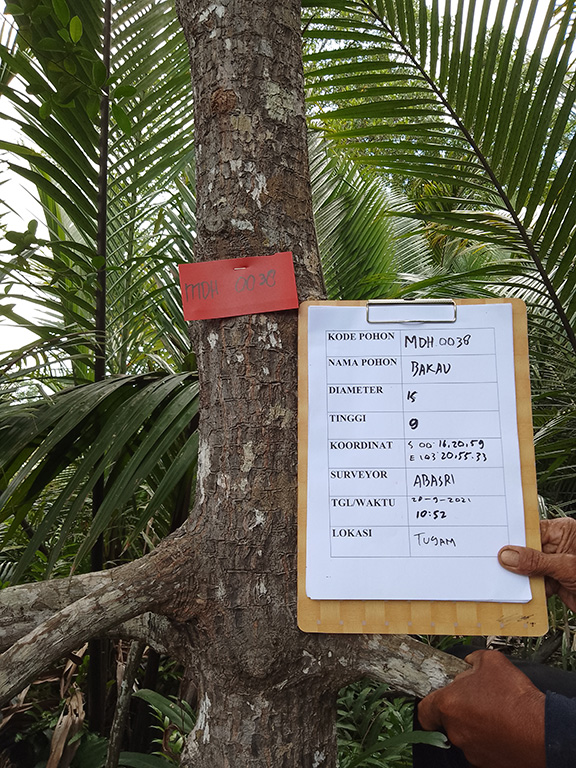 MDH 0038
KODE POHON MDH.0038
NAMA POHON BAKAU
DIAMETER 15
TINGGI 9
KOORDINAT S 00.16.20.59
E 103.20.55.33
SURVEYOR ABASRI
TGL/WAKTU 20-9-2021
10:52
LOKASI TUGAM